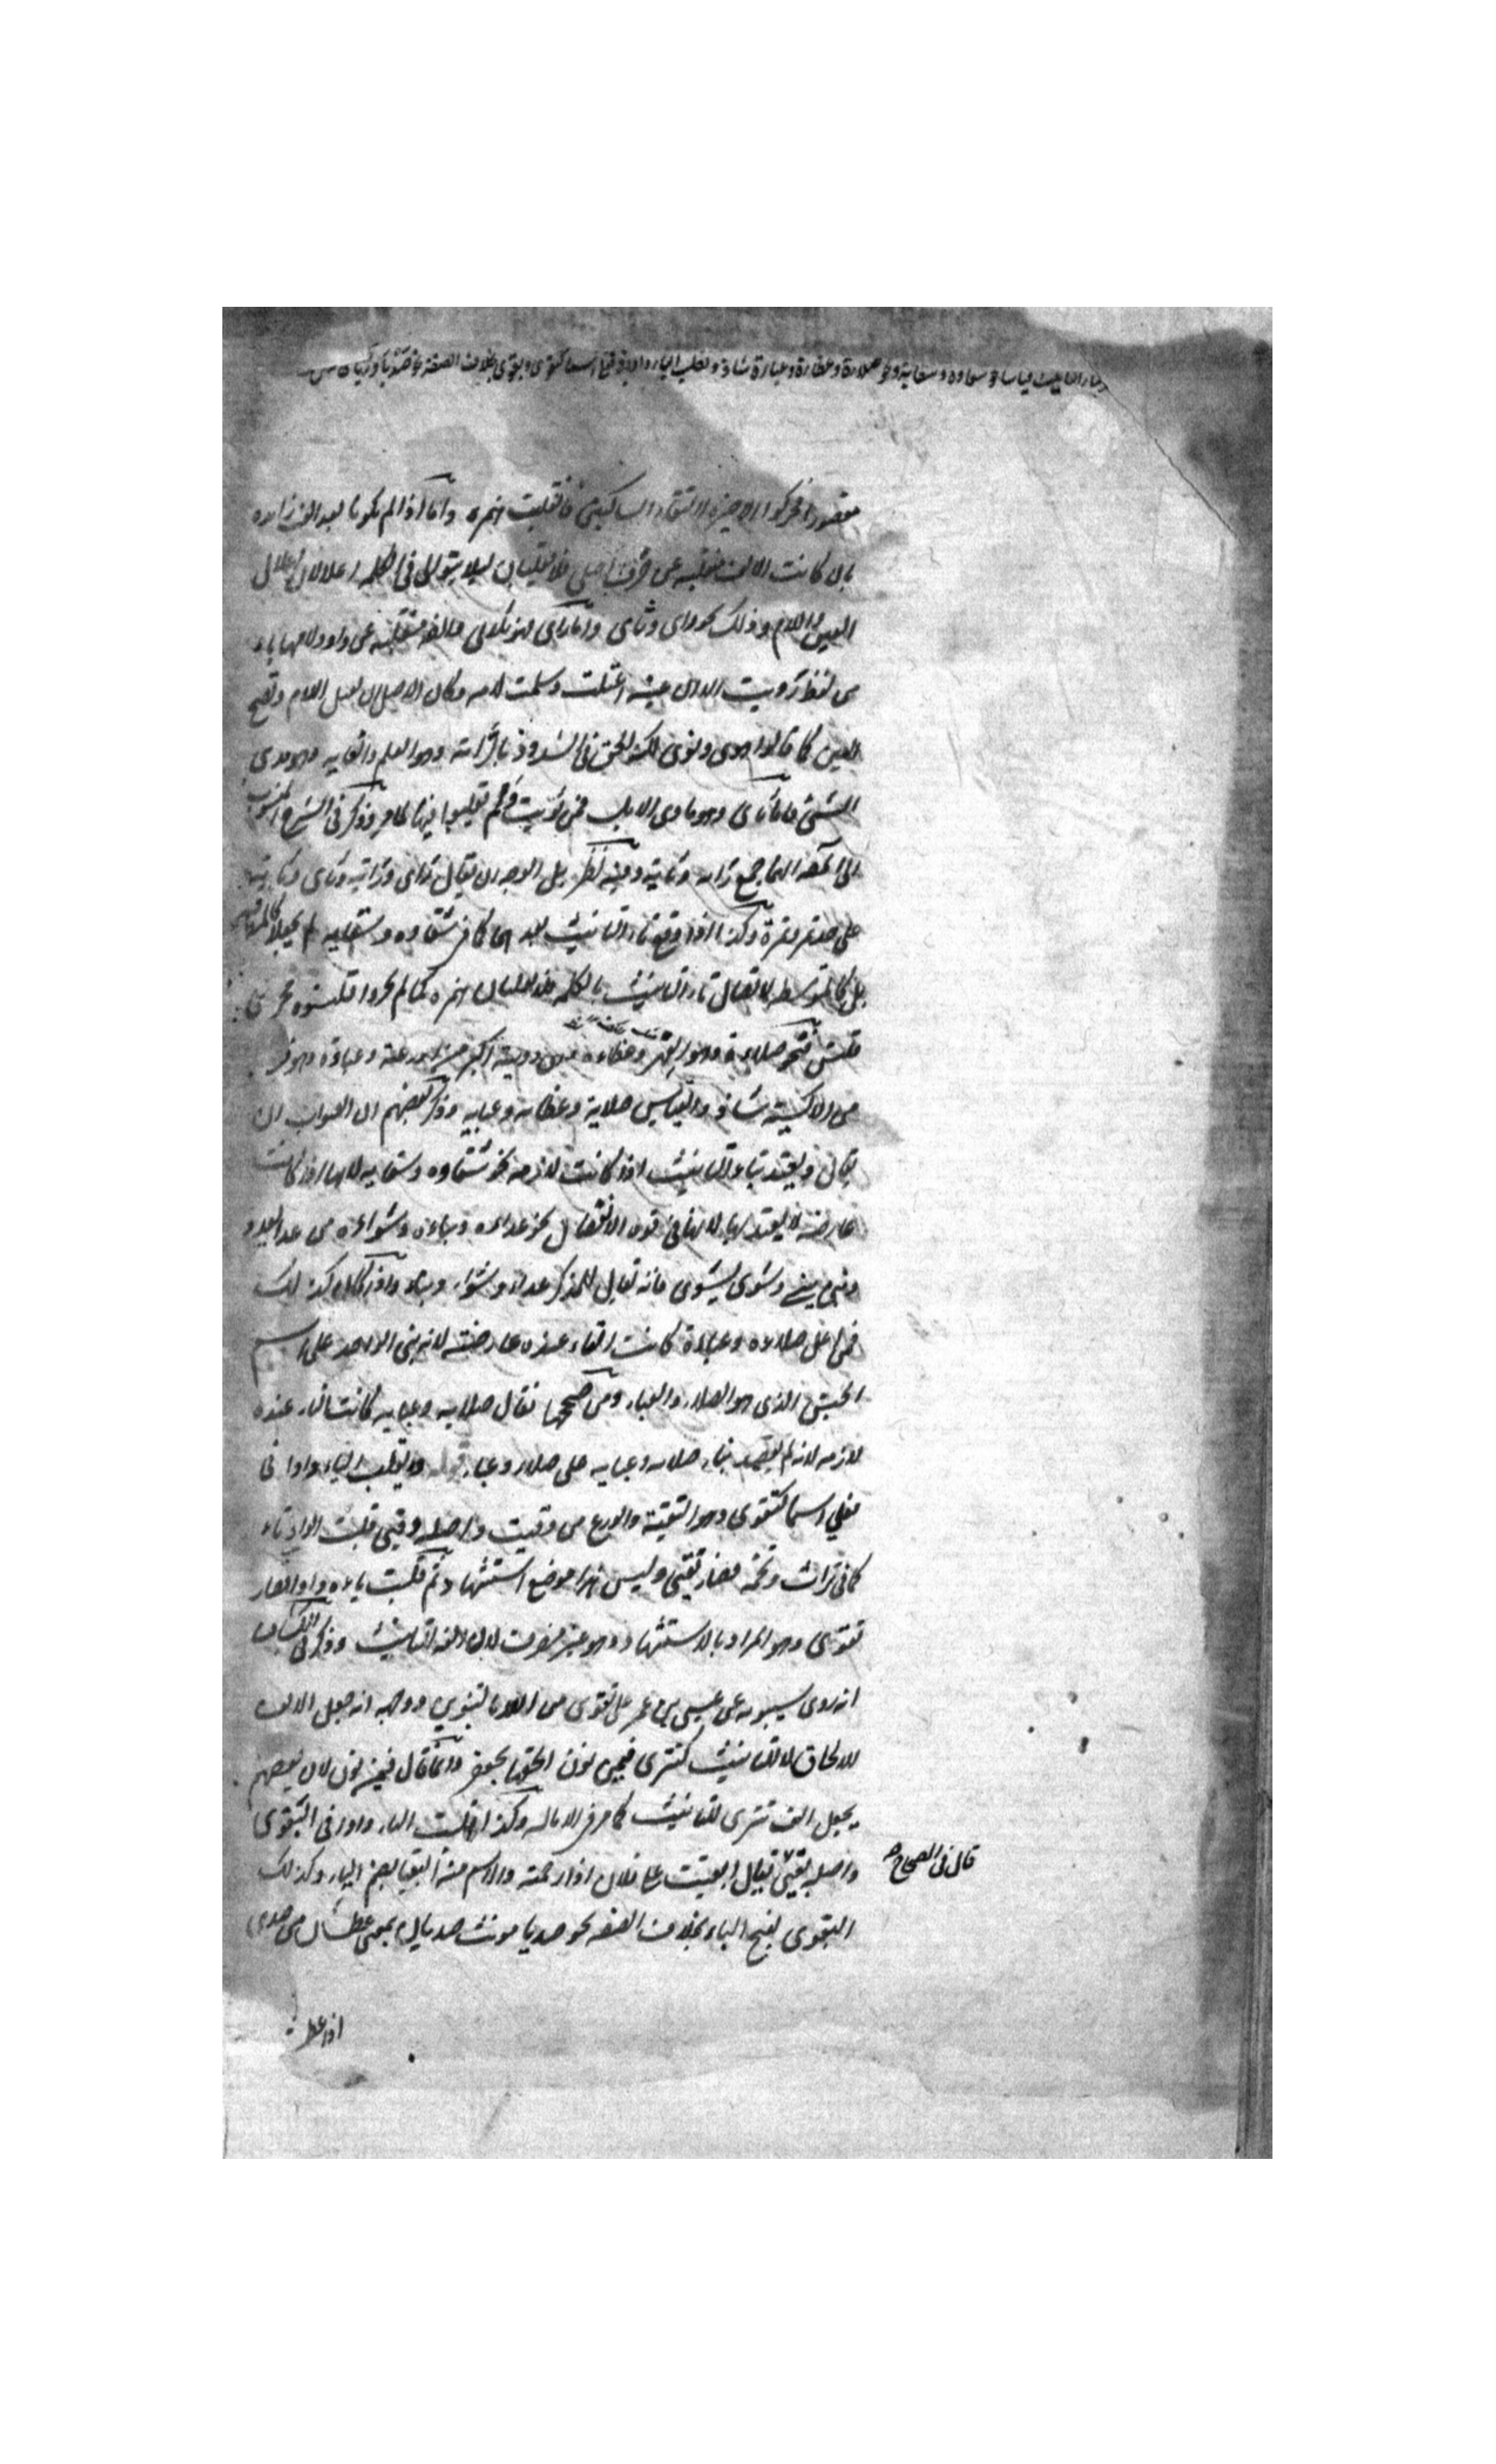 وبتاء التأنيث قياسا نحو شقاوة وسقاية ونحو صلاءة وعظاءة وعباءة شاذ وتقلب الياء واوا في فعلى اسما كتقوى وبقوى بخلاف الصفة نحو صديا وريا
مقصورا فحركوا الاخيرة لالتقاء الساكنين فانقلبت همزه واما اذا لم يكونا بعد الف زايده
بان كانت الالف منقلبه عن حرف اصلي فلا تقلبان ليلا يتوالى في الكلمه اعلالان اعلال
العين واللام وذلك نحو راى وثاى واما راى فالفه منقلبه عن واو ولامها ياء
من لفظ رويت الا ان عينه اعتلت وسلمت لامه وكان الاصل ان تعل اللام وتصح
العين كما قالوا هوى ونوى لكنه الحق في الشذوذ براى وهو العلم والغايه
الشيء واما ثاى وهو ماوى الابل فمن ثويت فلم تقلبوا فيها كما مر وذكر في الشرح المنسوب
الى المصنف انهما جمع رايه وثايه وفيه نظر بل الوجه ان يقال راى ورايه وثاى وثايه
على حد تمر وتمرة وكذا اذا وقع تاء التانيث بعدهما كما في شقاوه وسقايه لم يجعلا كالمتطرفه
بل كالمتوسطه لاتصال تاء التانيث بالكلمه فلا تقلبان همزه كما لم يجروا قلنسوه مجرى
قلنس فنحو صلاءة وهو الفهر وعظاءه وهي دويبه اكبر من الوزغه وعباءة وهو ضرب
من الاكسية شاذ والقياس صلاية وعظايه وعبايه وذكر بعضهم ان الصواب ان
يقال ويعتد بتاء التانيث اذا كانت لازمه نحو شقاوه وسقايه لانها اذا كانت
عارضه لا يعتد بها لانها في قوه الانفصال نحو عداءه وبناءه وشواءه من عدا يعدو
وبنى يبني وشوى يشوى فانه يقال للمذكر عداء وشواء وبناء واذا كان كذلك
فمن اعل صلاءه وعباءة كانت التاء عنده عارضه لانه بنى الواحد على اسم
الجنس الذي هو الصلاء والعباء ومن صححها فقال صلايه وعبايه كانت التاء عنده
لازمه لانه لم يقصد بناء صلايه وعبايه على صلاء وعباء قوله وتقلب الياء واوا في
فعلى اسما كتقوى وهو التقية والورع من وقيت واصله وقيى قلبت الواو تاء
كما في تراث وتخمه فصار تقيى وليس هذا موضع استشهاد ثم قلبت ياءه واوا فصار
تقوى وهو المراد بالاستشهاد وهو غير منصرف لان الفه للتانيث وذكر في الكشاف
انه روى سيبويه عن عيسى بن عمر على تقوى من الله بالتنوين ووجهه انه جعل الالف
للالحاق لا للتانيث كتترى فيمن نون الحقها بجعفر وانما قال فيمن نون لان بعضهم
يجعل الف تترى للتانيث كما مر في الاماله وكذا قلبت الياء واوا في البقوى
واصله بقيى يقال ابقيت على فلان اذا رحمته والاسم منه البقيا بضم الباء وكذلك
قال في الصحاح
البقوى بفتح الباء بخلاف الصفه نحو صديا مونث صديان بمعنى عطشان من صدي
اذا عطش